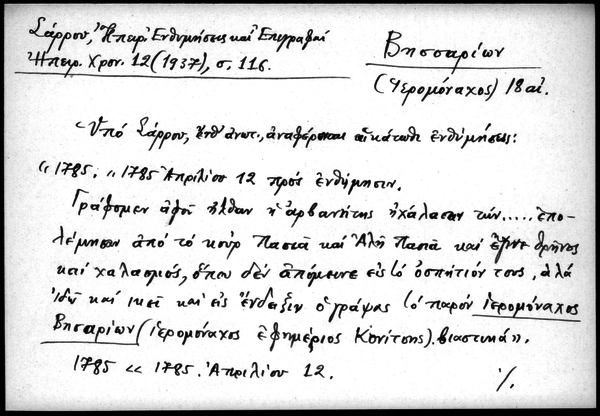 Σάρρου, Ἠπειρ. Ἐνθυμήσεις καὶ Ἐπιγραφαὶ
Ἠπειρ. Χρον. 12 (1937), σ. 116.
Βησσαρίων
(Ἱερομόναχος) 18 αἰ.
Ὑπό Σάρρου, ἔνθ' ἀνωτ., ἀναφέρονται αἱ κάτωθι ἐνθυμήσεις:
«1785. «1785 Ἀπριλίου 12 πρός ἐνθύμησιν.
Γράφομεν ἀφοῦ ἦλθαν ἡ ἀρβανήτης ἠχάλασαν τήν..... ἐπο-
λέμησαν ἀπό τό κούρ Πασιᾶ καί Ἀλῆ Πασιᾶ καί ἔγινε θρῆνος
καί χαλασμιός, ὅπου δέν ἀπόμεινε εἰς τό ὁσπήτιόν τους, ἀλά
καί καί εἰς ἔνδειξιν ὁ γράψας τό παρόν ἱερομόναχος
Βησαρίων (ἱερομόναχος ἐφημέριος Κονίτσης). βιαστικά».
1785 «1785. Ἀπριλίου 12.
%.